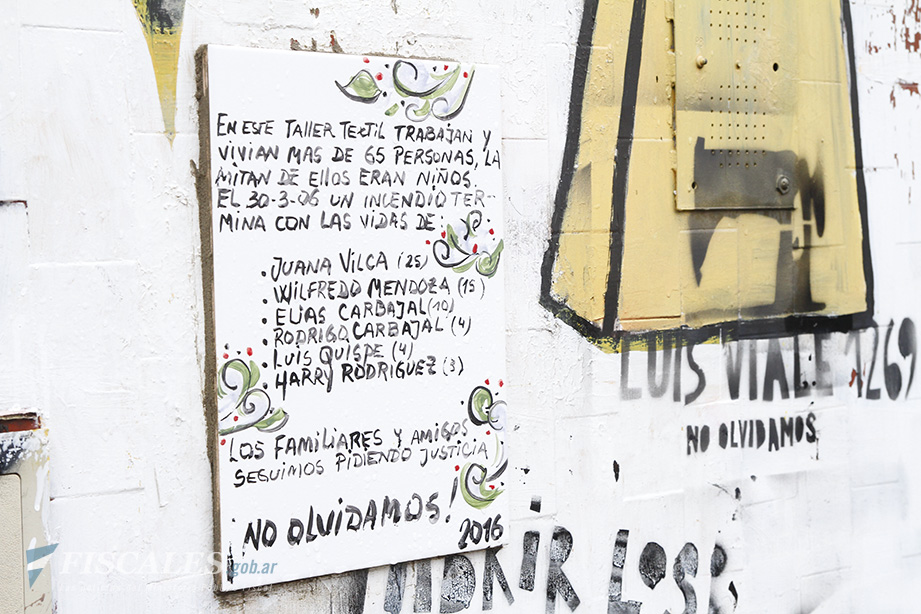 EN ESTE TALLER TEXTIL TRABAJAN Y
VIVIAN MAS DE 65 PERSONAS, LA
MITAN DE ELLOS ERAN NIÑOS.
EL 30-3-06 UN INCENDIO TER-
MINA CON LAS VIDAS DE:
• JUANA VILCA (25)
• WILFREDO MENDOZA (15)
• ELIAS CARBAJAL (10)
• RODRIGO CARBAJAL (4)
• LUIS QUISPE (4)
• HARRY RODRIGUEZ (3)
LOS FAMILIARES Y AMIGOS
SEGUIMOS PIDIENDO JUSTICIA
¡NO OLVIDAMOS!
2016
LUIS VIALE 1269
NO OLVIDAMOS
FISCALES
gob.ar